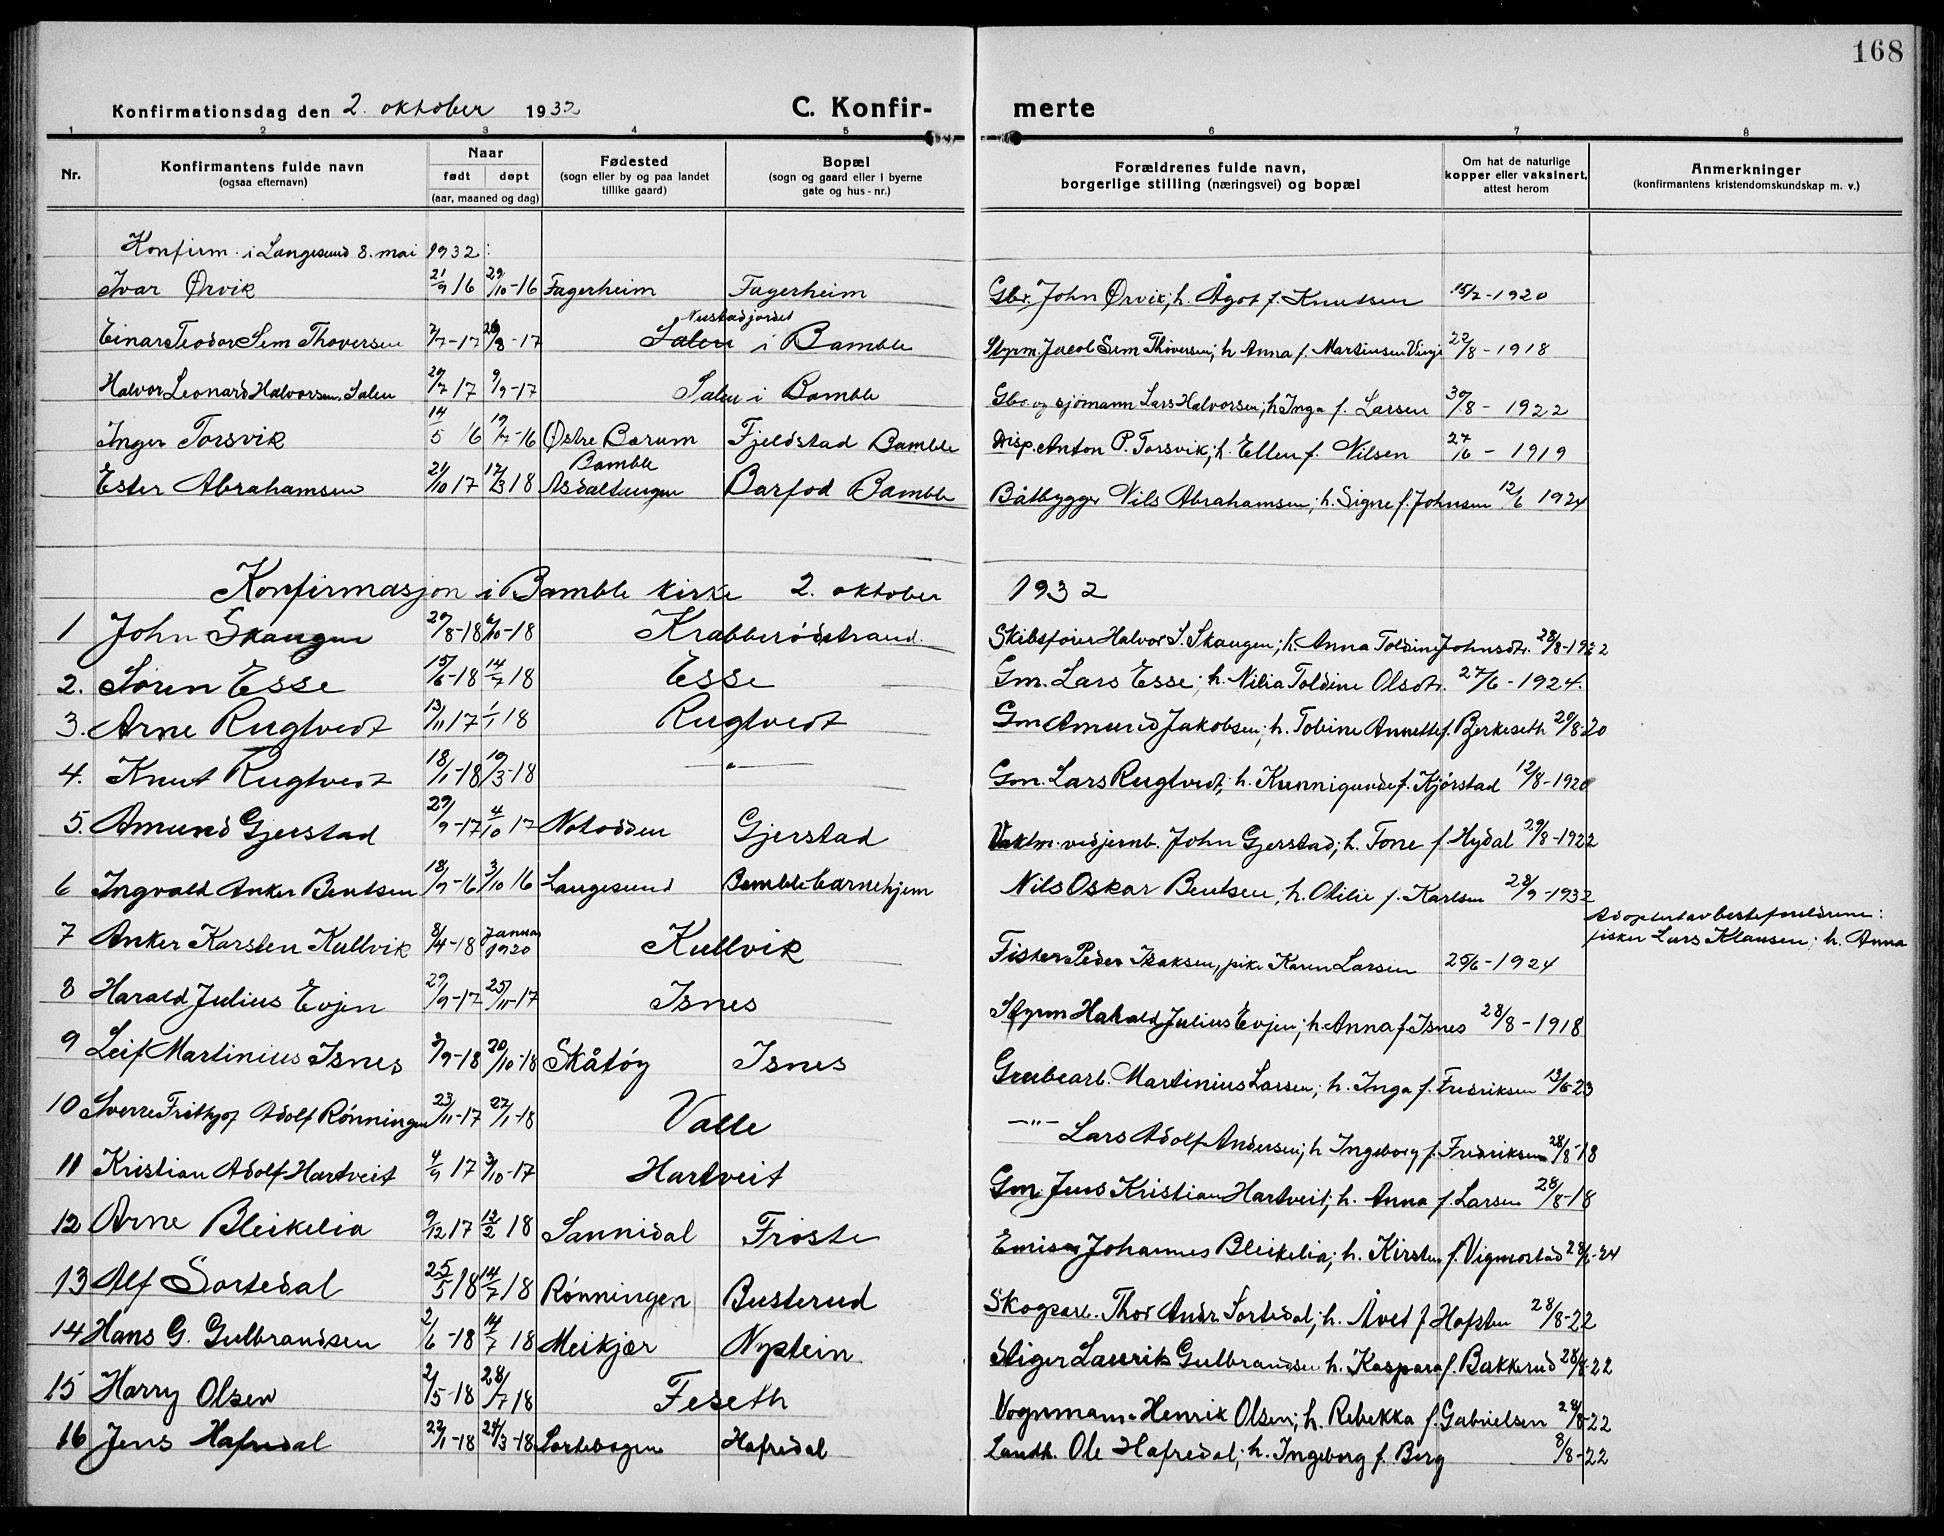 168
Konfirmationsdag den 2. oktober 1932 C. Konfirmerte
1 2 3 4 5 6 7 8
Nr. Konfirmantens fulde navn (ogsaa efternavn) Naar født døpt (aar, maaned og dag) Fødested (sogn eller by og paa landet tillike gaard) Bopæl (sogn og gaard eller i byerne gate og hus-nr.) Forældrenes fulde navn, borgerlige stilling (næringsvei) og bopæl Om hat de naturlige kopper eller vaksinert, attest herom Anmerkninger (konfirmantens kristendomskundskap m. v.)
Konfirm. i Langesund 8. mai 1932:
Ivar Ørvik 21/9 16 29/10-16 Fagerheim Fagerheim Gbr. John Ørvik; h. Ågot f. Knutsen 15/7-1920
Nustadjordet
Einar Teodor Sem Thoversen 7/7-17 26/8-17 Salen i Bamble Styrm. Jacob Sem Thoversen; h Anna f. Martinsen Vinje 22/8-1918
Halvor Leonard Halvorsen Salen 29/7 17 9/9-17 Salen i Bamble Gbr. og sjømann Lars Halvorsen; h Inga f. Larsen 30/8-1922
Inger Torsvik 14/5 16 19/7-16 Østre Bærum Fjeldstad Bamble Disp. Anton P. Torsvik; h. Ellen f. Nilsen 27/6-1919
Bamble
Ester Abrahamsen 21/10 17 17/3 18 Asdaltangen Barfod Bamble Båtbygger Nils Abrahamsen; h. Signe f. Johnsen 12/6 1924
Konfirmasjon i Bamble kirke 2. oktober 1932
1 John Skaugen 29/8-18 6/10-18 Krabberødstrand. Skibsfører Halvor S. Skaugen; h. Anna Toldine Johnsdtr. 28/8-1922
2. Søren Esse 15/6-18 14/7 18 Esse Gm. Lars Esse; h. Nilia Toldine Olsdtr. 27/6-1924.
3. Arne Rugtvedt 13/11 17 1/1 18 Rugtvedt Gm Amund Jakobsen; h. Tobine Annette f. Bjerkeseth 29/8-20
4. Knut Rugtvedt 18/1-18 19/3-18 —"— Gm. Lars Rugtvedt; h. Kunnigunde f. Kjørstad 12/8-1920
5. Amund Gjerstad 29/9-17 4/10 17 Notodden Gjerstad Vaktm. ved jernb. John Gjerstad; h. Tone f Hydal 29/8-1922
6 Ingvald Anker Bentsen 18/9-16 3/10 16 Langesund Bamble barnehjem Nils Oskar Bentsen, h. Otilie f. Karlsen 28/9-1932
7 Anker Karsten Kullvik 8/4-18 januar 1920 Kullvik Fisker Peder Isaksen, pike Karen Larsen 25/6-1924 Adoptert av besteforeldrene: fisker Lars Klausen; h. Anna
8 Harald Julius Evjen 27/9-17 25/11-17 Isnes Styrm Harald Julius Evjen; h. Anna f Isnes 28/8-1918
9 Leif Martinius Isnes 3/9-18 20/10-18 Skåtøy Isnes Grubearb. Martinius Larsen; h. Inga f. Fredriksen 13/6-23
10 Sverre Fritjof Adolf Rønningen 23/11-17 27/1-18 Valle —"— Lars Adolf Andersen; h Ingeborg f. Fredriksen 28/8-18
11 Kristian Adolf Hartveit 4/9 17 3/10-17 Hartveit Gm. Jens Kristian Hartveit; h. Anna f. Larsen 28/8-18
12 Arne Bleikelia 9/12 17 12/2 18 Sannidal Froste Emisær Johannes Bleikelia; h. Kirsten f. Vigmostad 28/6-24
13 Alf Sortedal 25/5 18 14/7 18 Rønningen Busterud Skogsarb. Thor Andr. Sortedal; h. Åvet f Hafsten 28/8-22
14 Hans G. Gulbrandsen 2/6-18 14/7 18 Meikjær Nystein Stiger Lauritz Gulbrandsen h. Kaspara f. Bakkerud 28/8-22
15 Harry Olsen 2/5-18 28/7 18 Feseth Vognmann Henrik Olsen; h. Rebekka f. Gabrielsen 28/8-22
16 Jens Hafredal 27/1-18 24/3-18 Sortebogen Hafredal Landh. Ole Hafredal; h. Ingeborg f. Berg 8/8-22